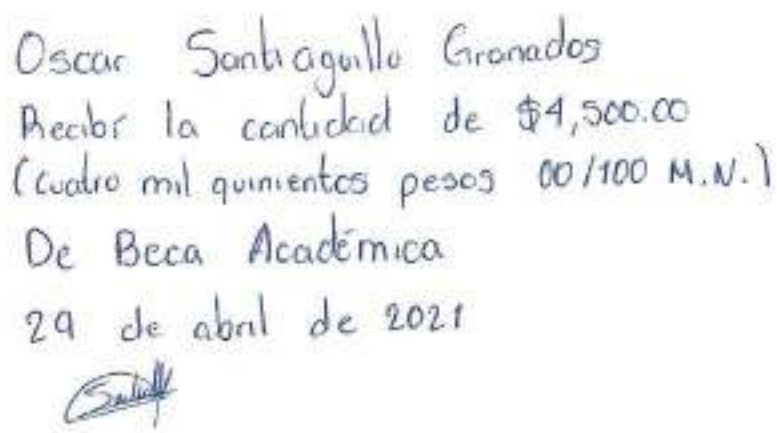 Oscar Santiaguillo Granados
Recibí la cantidad de $4,500.00
(cuatro mil quinientos pesos 00/100 M.N.)
De Beca Académica
29 de abril de 2021